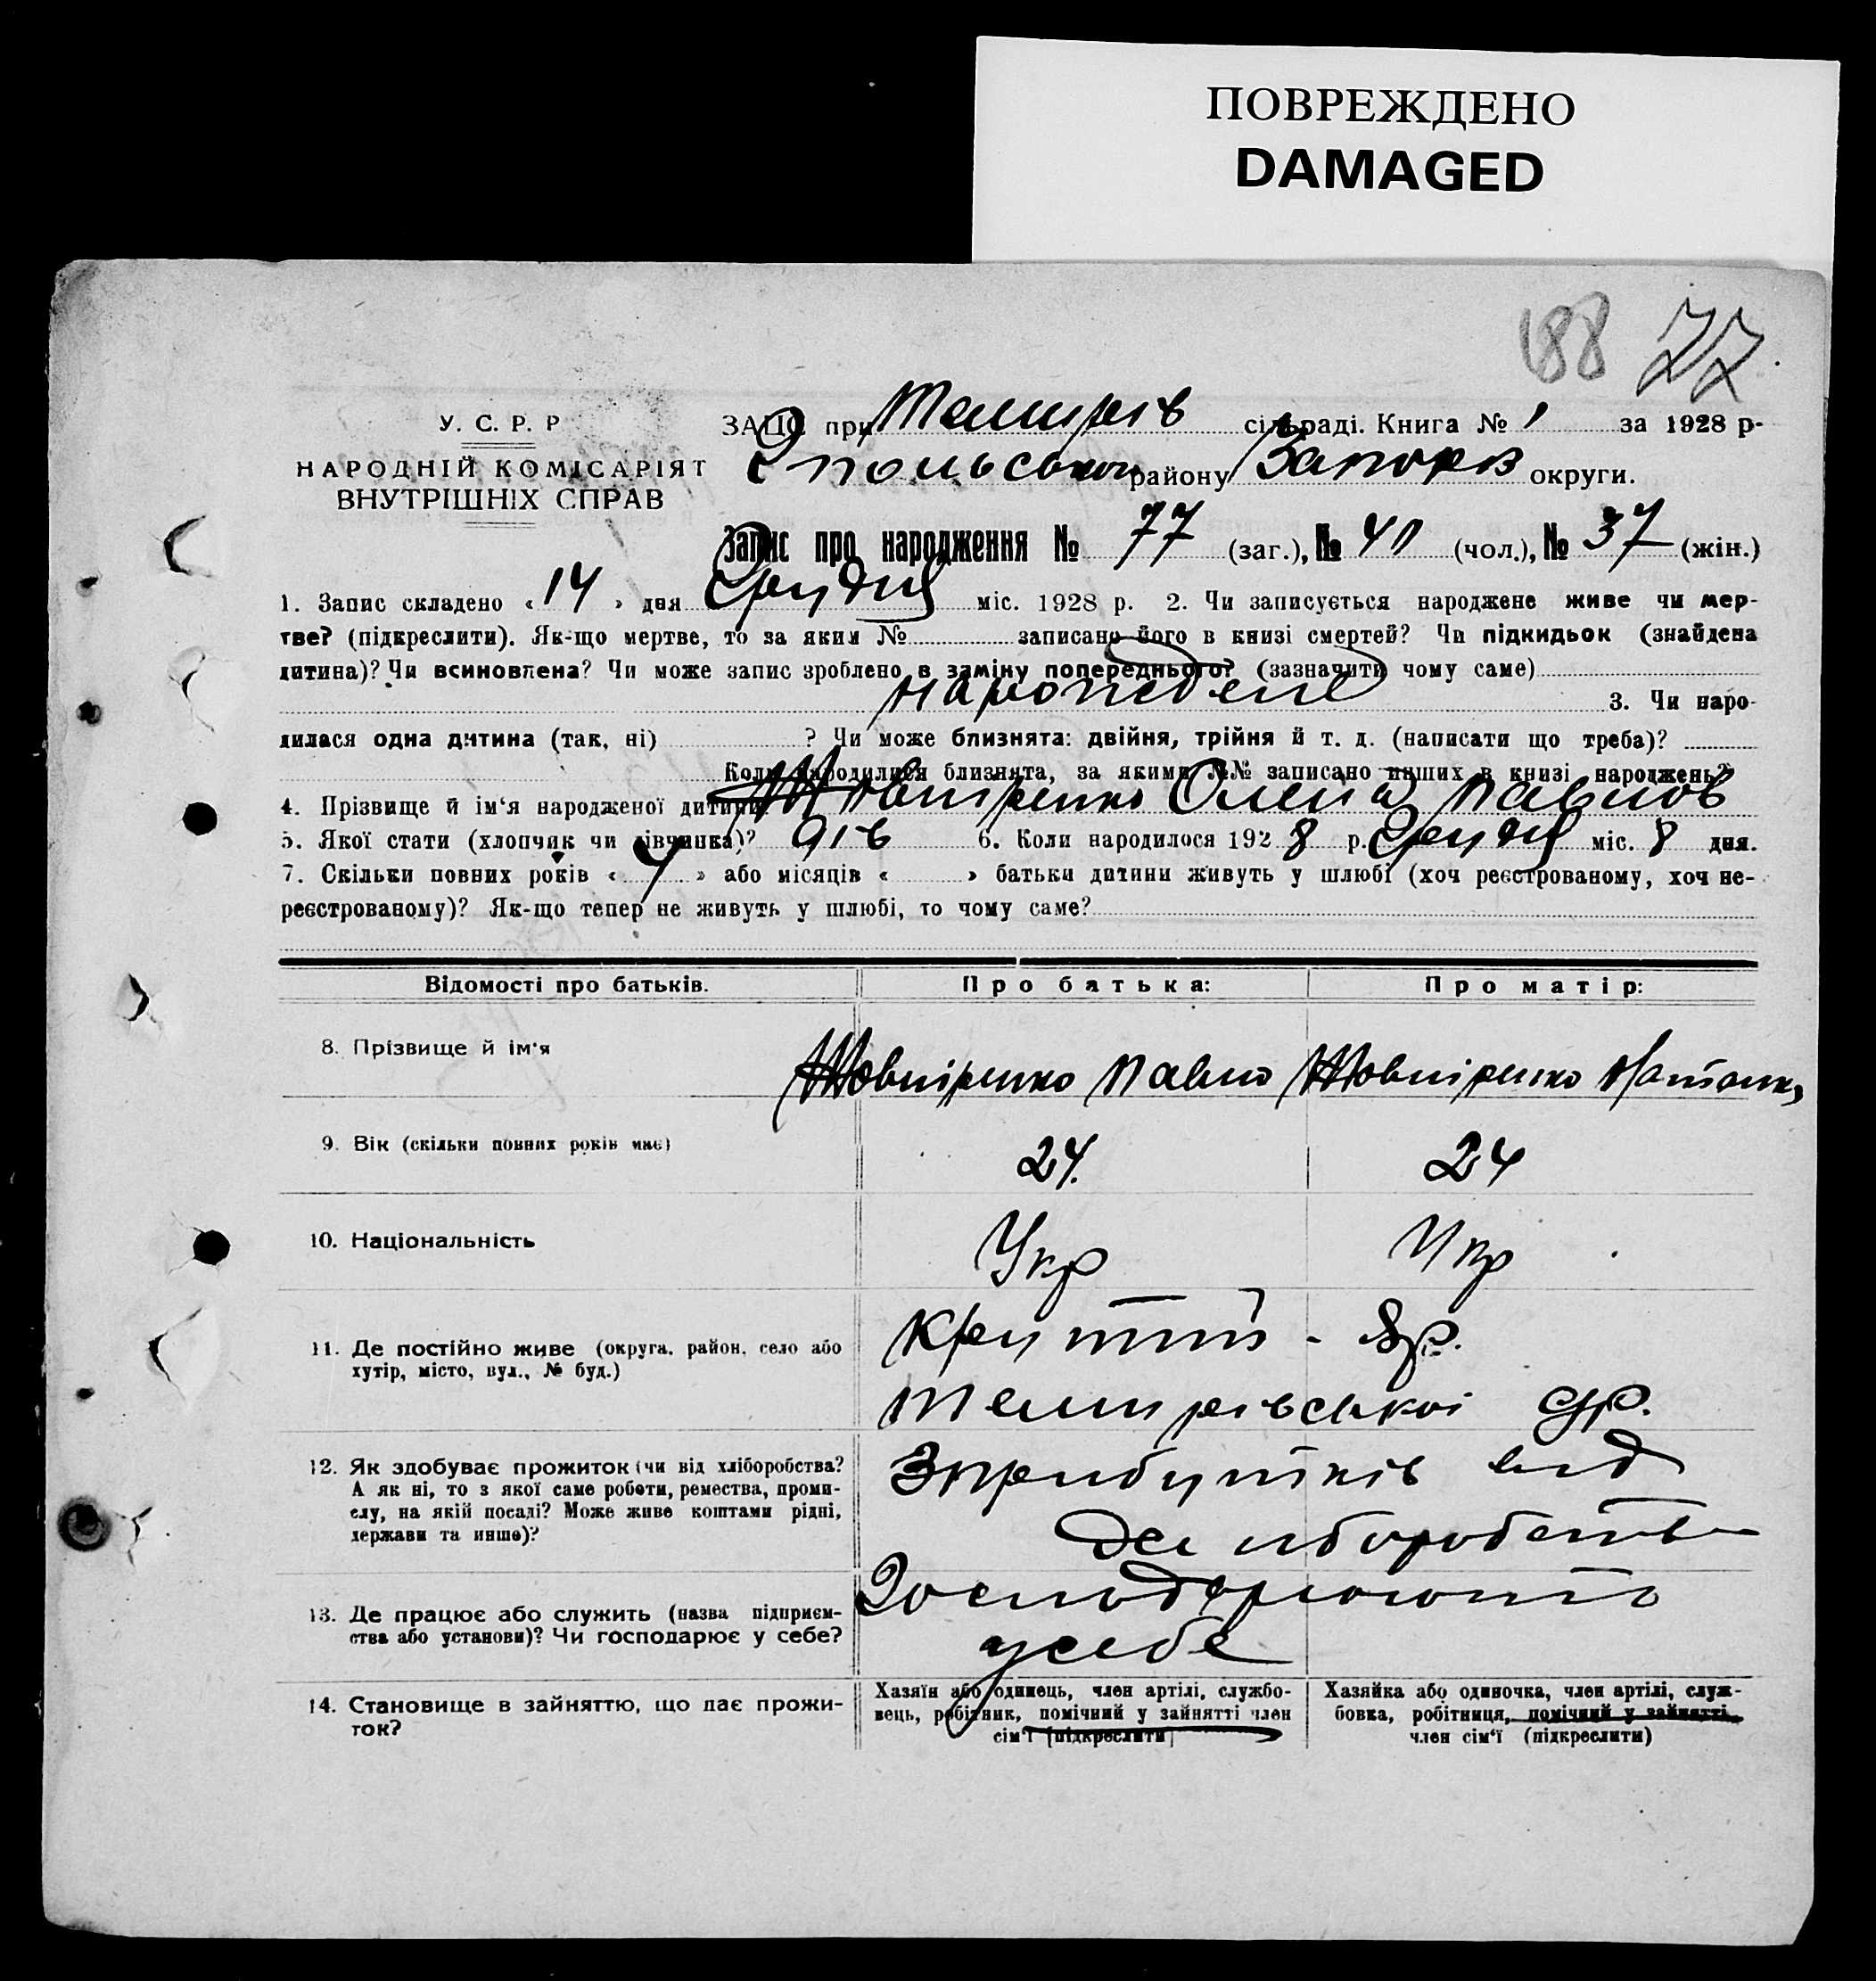 ПОВРЕЖДЕНО
DAMAGED
188 77
У. С. Р. Р
НАРОДНІЙ КОМІСАРІЯТ
ВНУТРІШНІХ СПРАВ
ЗАПИС при Темирів сільраді. Книга № 1 за 1928 р-
Гпольського району Запоріз округи.
Запис про народження № 77 (заг.), № 40 (чол.), № 37 (жін.)
1. Запис складено « 14 » дня Грудня міс. 1928 р. 2. Чи записується народжене живе чи мер-
тве? (підкреслити). Як-що мертве, то за яким № записано його в книзі смертей? Чи підкидьок (знайдена
дитина)? Чи всиновлена? Чи може запис зроблено в заміну попереднього? (зазначити чому саме)
народжене 3. Чи наро-
дилася одна дитина (так, ні) ? Чи може близнята: двійня, трійня й т. д. (написати що треба)?
Коли народилися близнята, за якими №№ записано инших в книзі народжень?
4. Прізвище й ім'я народженої дитини Жовніренко Олена Павлов
5. Якої стати (хлопчик чи дівчинка)? дів 6. Коли народилося 1928 р. Грудня міс. 8 дня.
7. Скільки повних років « 4 » або місяців « » батьки дитини живуть у шлюбі (хоч реєстрованому, хоч не-
реєстрованому)? Як-що тепер не живуть у шлюбі, то чому саме?
Відомості про батьків. Про батька: Про матір:
8. Прізвище й ім'я Жовніренко Павло Жовніренко Наталк
9. Вік (скільки повних років має) 24. 24
10. Національність Укр Укр
11. Де постійно живе (округа, район, село або
хутір, місто, вул., № буд.)
Крутий - Яр.
Темирівської с/р.
12. Як здобуває прожиток (чи від хліборобства?
А як ні, то з якої саме роботи, ремества, проми-
слу, на якій посаді? Може живе коштами рідні,
держави та инше)?
Зприбутків від
хліборобства
13. Де працює або служить (назва підприєм-
ства або установи)? Чи господарює у себе?
Господарюють
усебе
14. Становище в зайняттю, що дає прожи-
ток?
Хазяїн або одинець, член артілі, службо-
вець, робітник, помічний у зайнятті член
сім'ї (підкреслити)
Хазяйка або одиночка, член артілі, служ-
бовка, робітниця, помічний у зайнятті
член сім'ї (підкреслити)